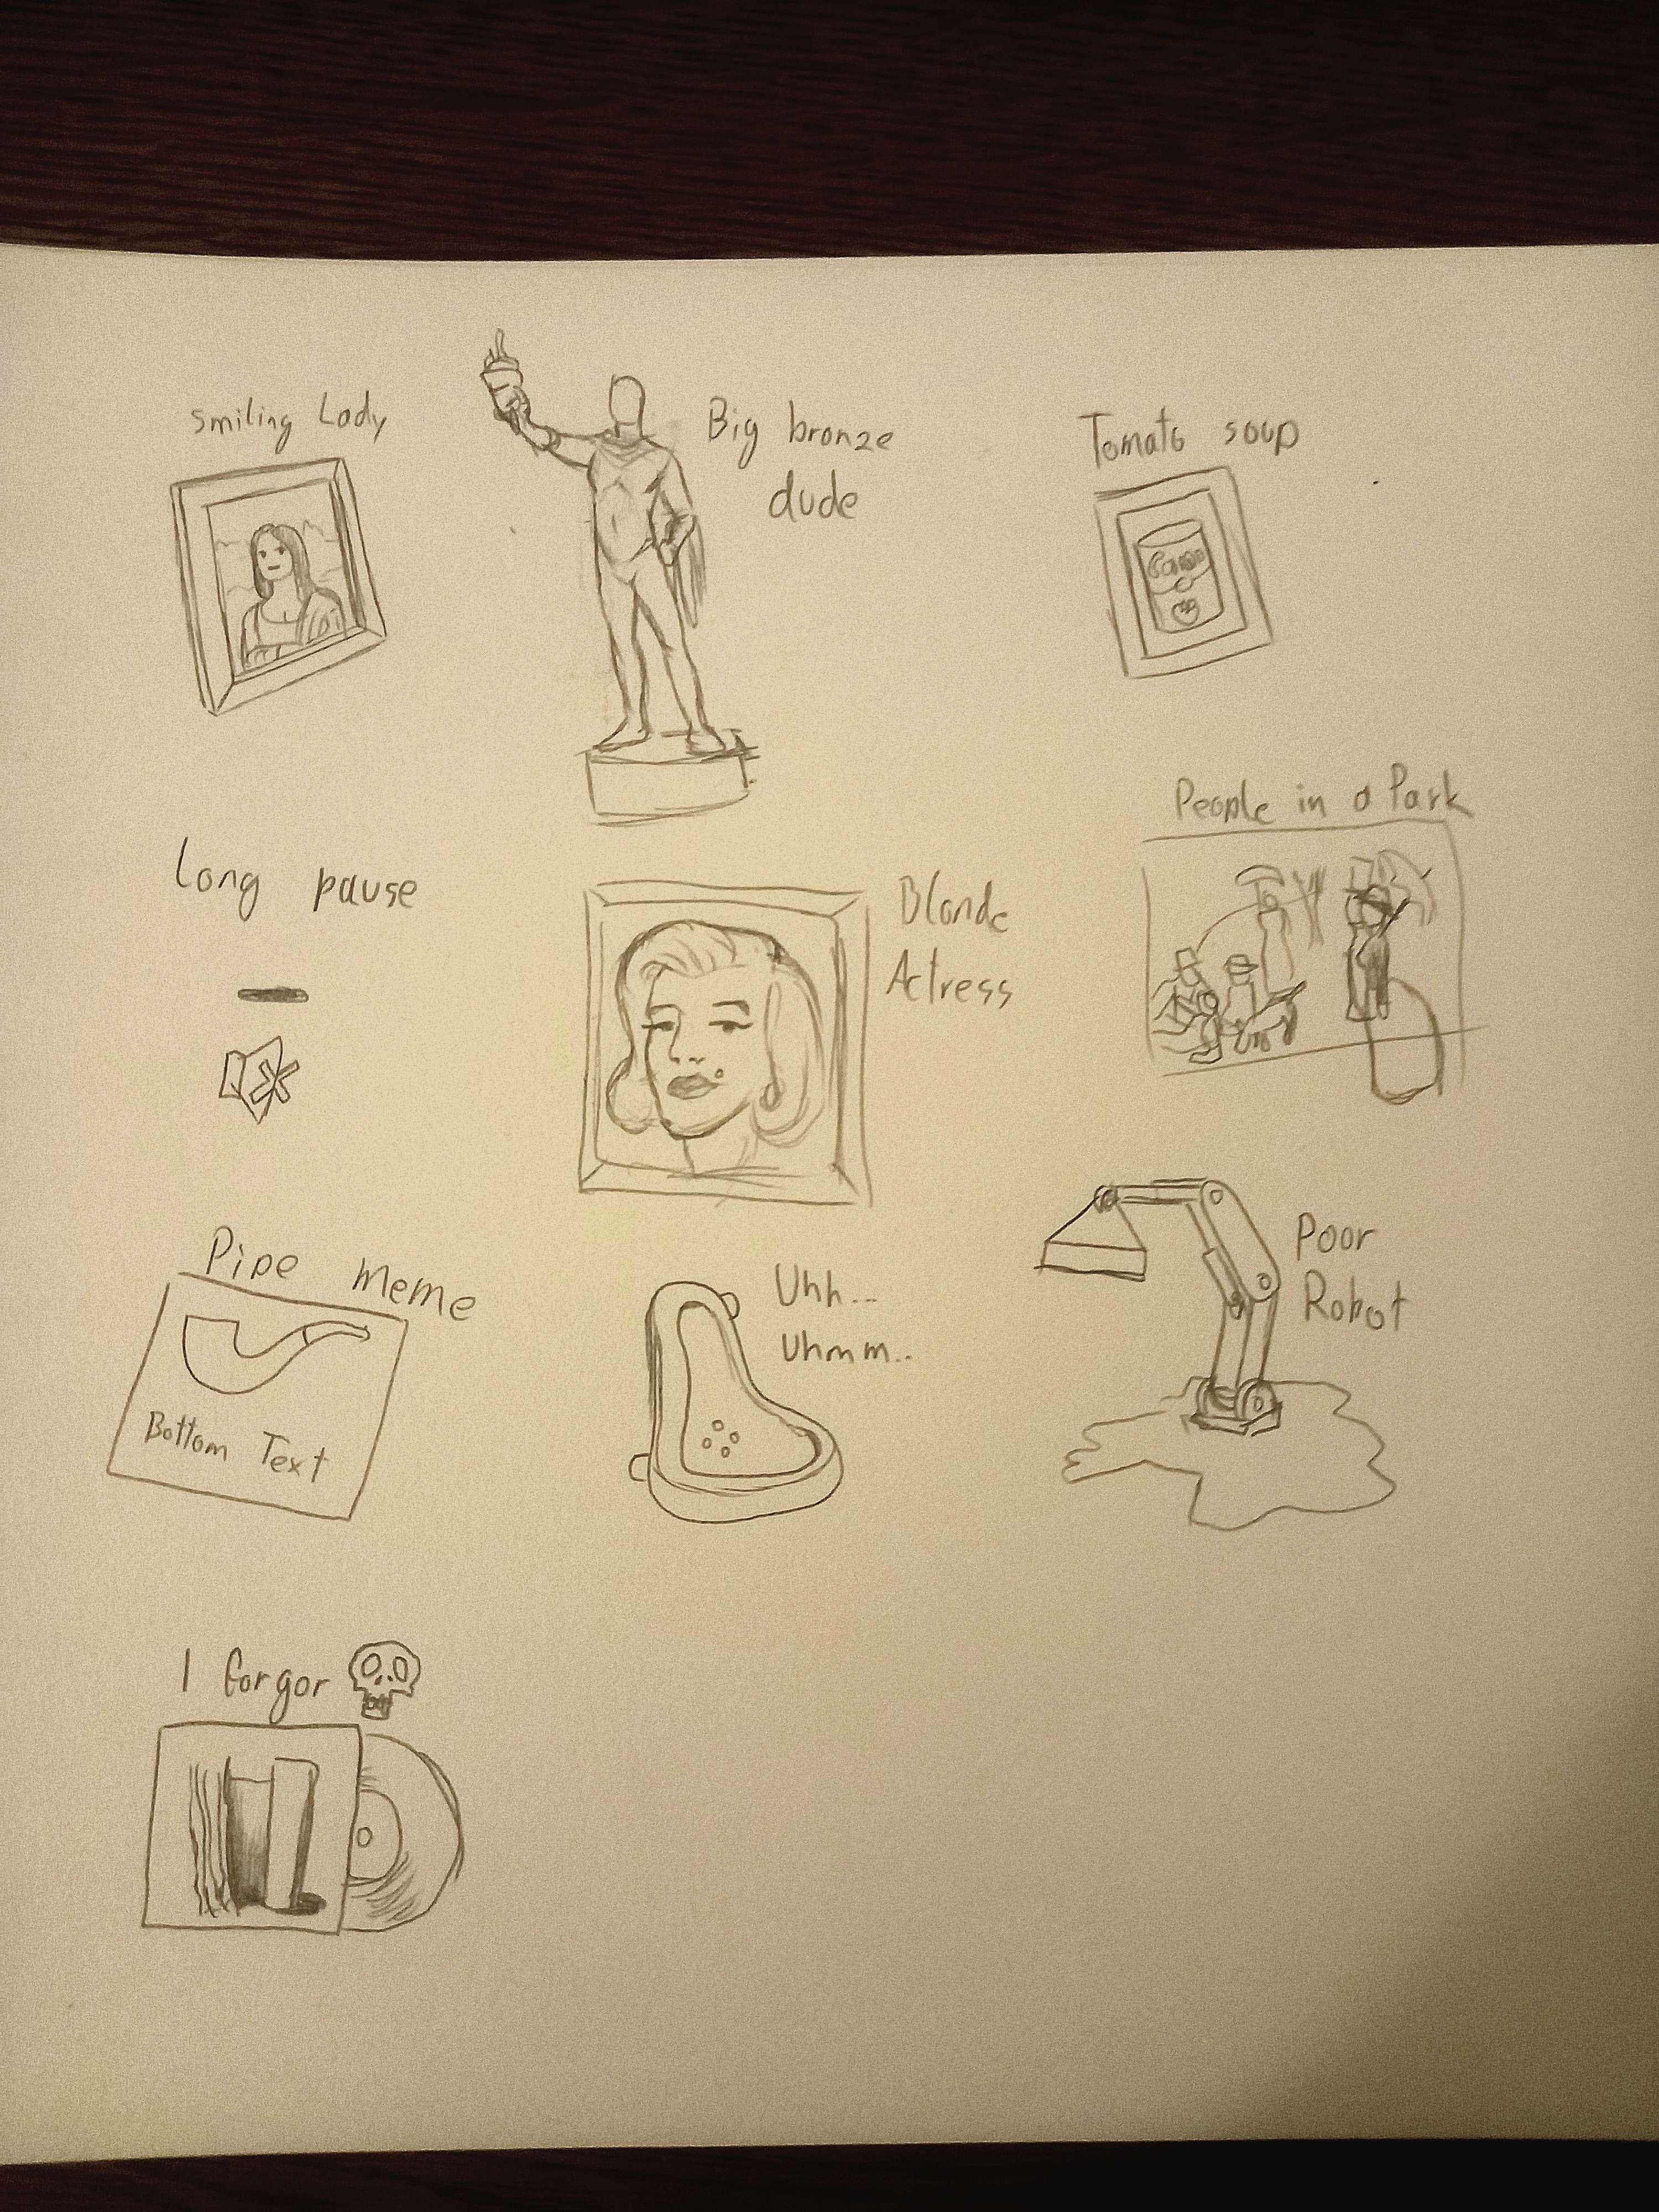 Smiling Lady
Big bronze
dude
Tomato soup
Long pause
Blonde
Actress
People in a Park
Pipe meme
Bottom Text
Uhh...
Uhmm..
Poor
Robot
I forgor